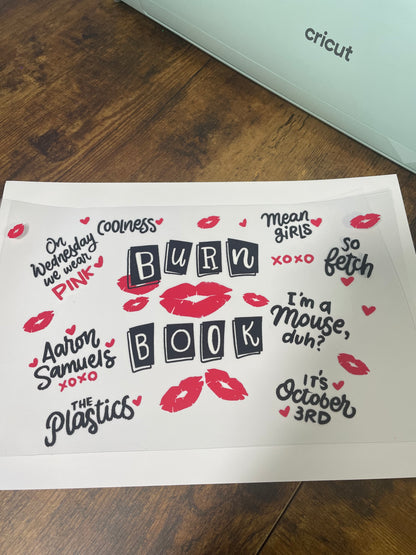 cricut
On
Wednesday
we wear
PINK
COOLNESS
Mean
GiRLS
XOXO
SO
fetch
BURN
BOOK
I'm a
Mouse,
duh?
Aaron
Samuels
XOXO
THE
Plastics
IT'S
October
3RD